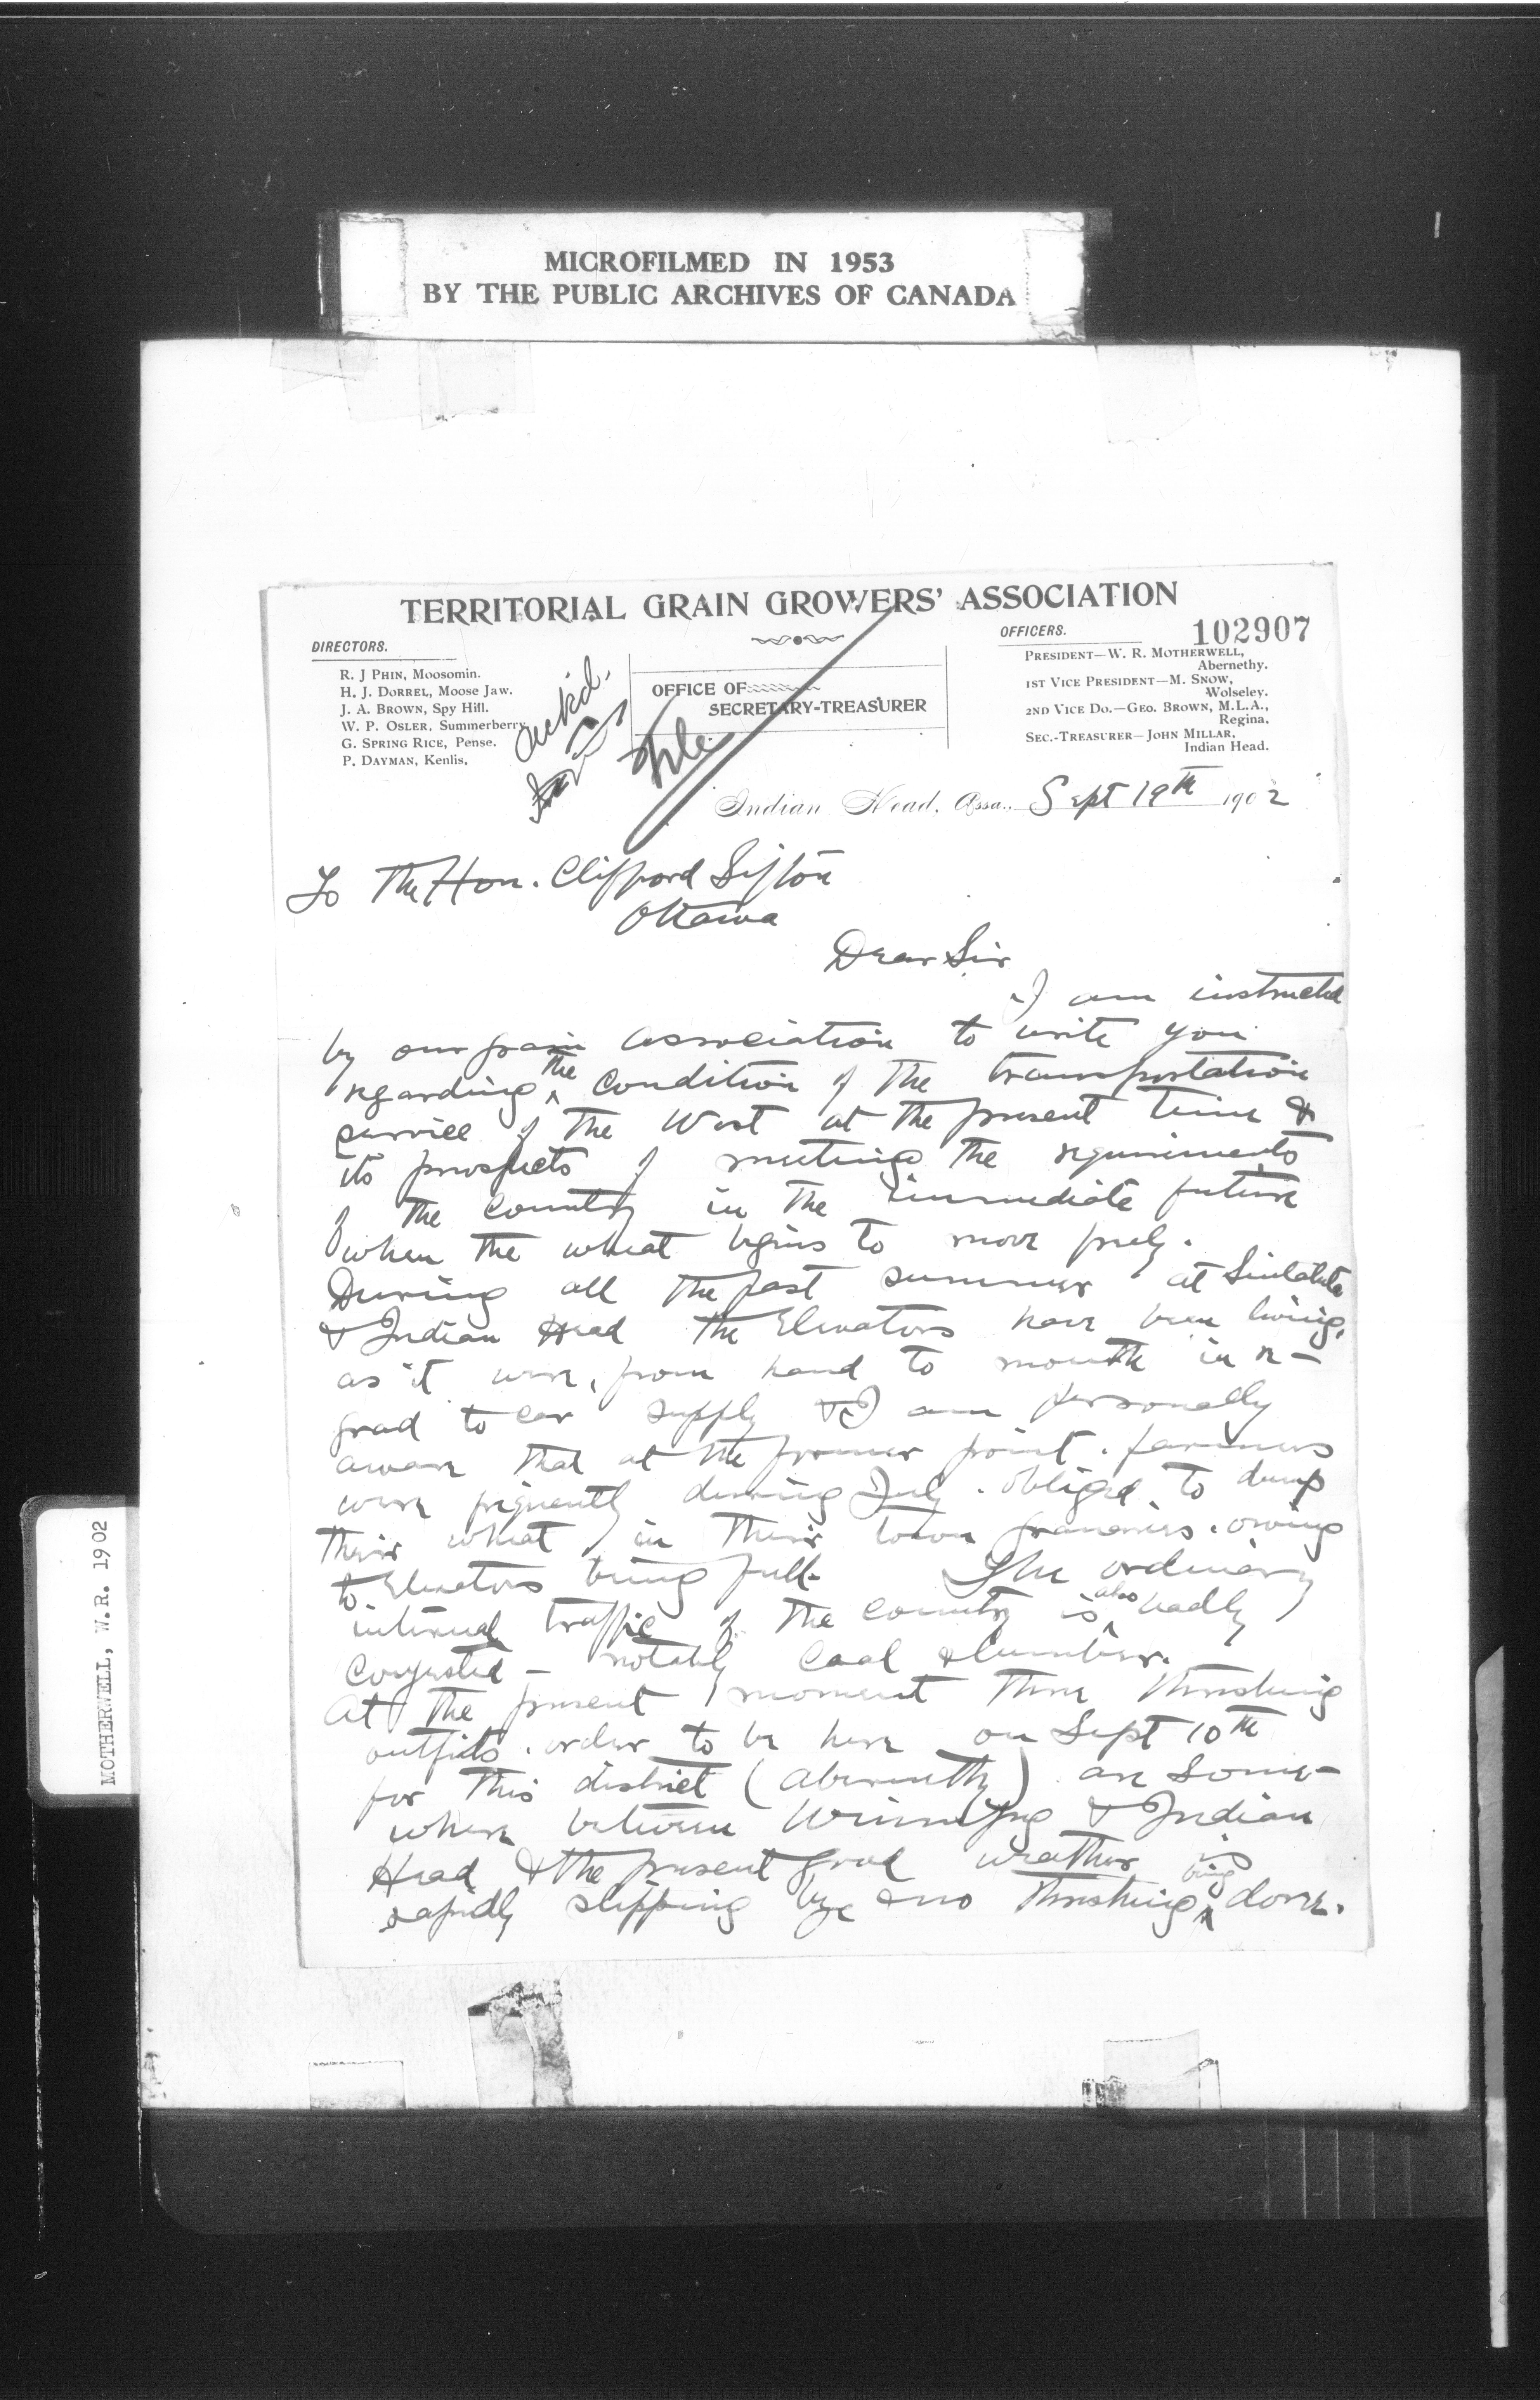 MICROFILMED IN 1953
BY THE PUBLIC ARCHIVES OF CANADA
TERRITORIAL GRAIN GROWERS' ASSOCIATION
102907
DIRECTORS.
R. J PHIN, Moosomin.
H. J. DORREL, Moose Jaw.
J. A. BROWN, Spy Hill.
W. P. OSLER, Summerberry
G. SPRING RICE, Pense.
P. DAYMAN, Kenlis.
Ackd.
File
OFFICE OF
SECRETARY-TREASURER
OFFICERS.
PRESIDENT—W. R. MOTHERWELL,
Abernethy.
1ST VICE PRESIDENT—M. SNOW,
Wolseley.
2ND VICE DO.—GEO. BROWN, M.L.A.,
Regina.
SEC.-TREASURER—JOHN MILLAR,
Indian Head.
Indian Head, Assa., Sept 19th 1902
To The Hon. Clifford Sifton
Ottawa
Dear Sir
I am instructed
by our grain association to write you
regarding the condition of the transportation
service of the West at the present time &
its prospects of meeting the requirements
of the country in the immediate future
when the wheat begins to move freely.
During all the past summer at Sintaluta
& Indian Head the Elevators have been living,
as it were, from hand to mouth in re-
grad to car supply & I am personally
aware that at the former point. farmers
were frequently during July. obliged to dump
their wheat in their town granaries. owing
to Elevators being full. The ordinary
internal traffic of the country is also badly
congested - notably coal & lumber.
At the present moment three threshing
outfits. order to be here on Sept 10th
for this district (Abernethy) are some-
where between Winnipeg & Indian
Head & the present good weather is
rapidly slipping by & no threshing being done.
MOTHERWELL, W.R. 1902